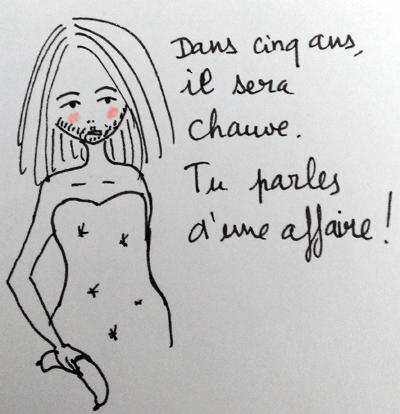 Dans cinq ans,
il sera
chauve.
Tu parles
d'une affaire !